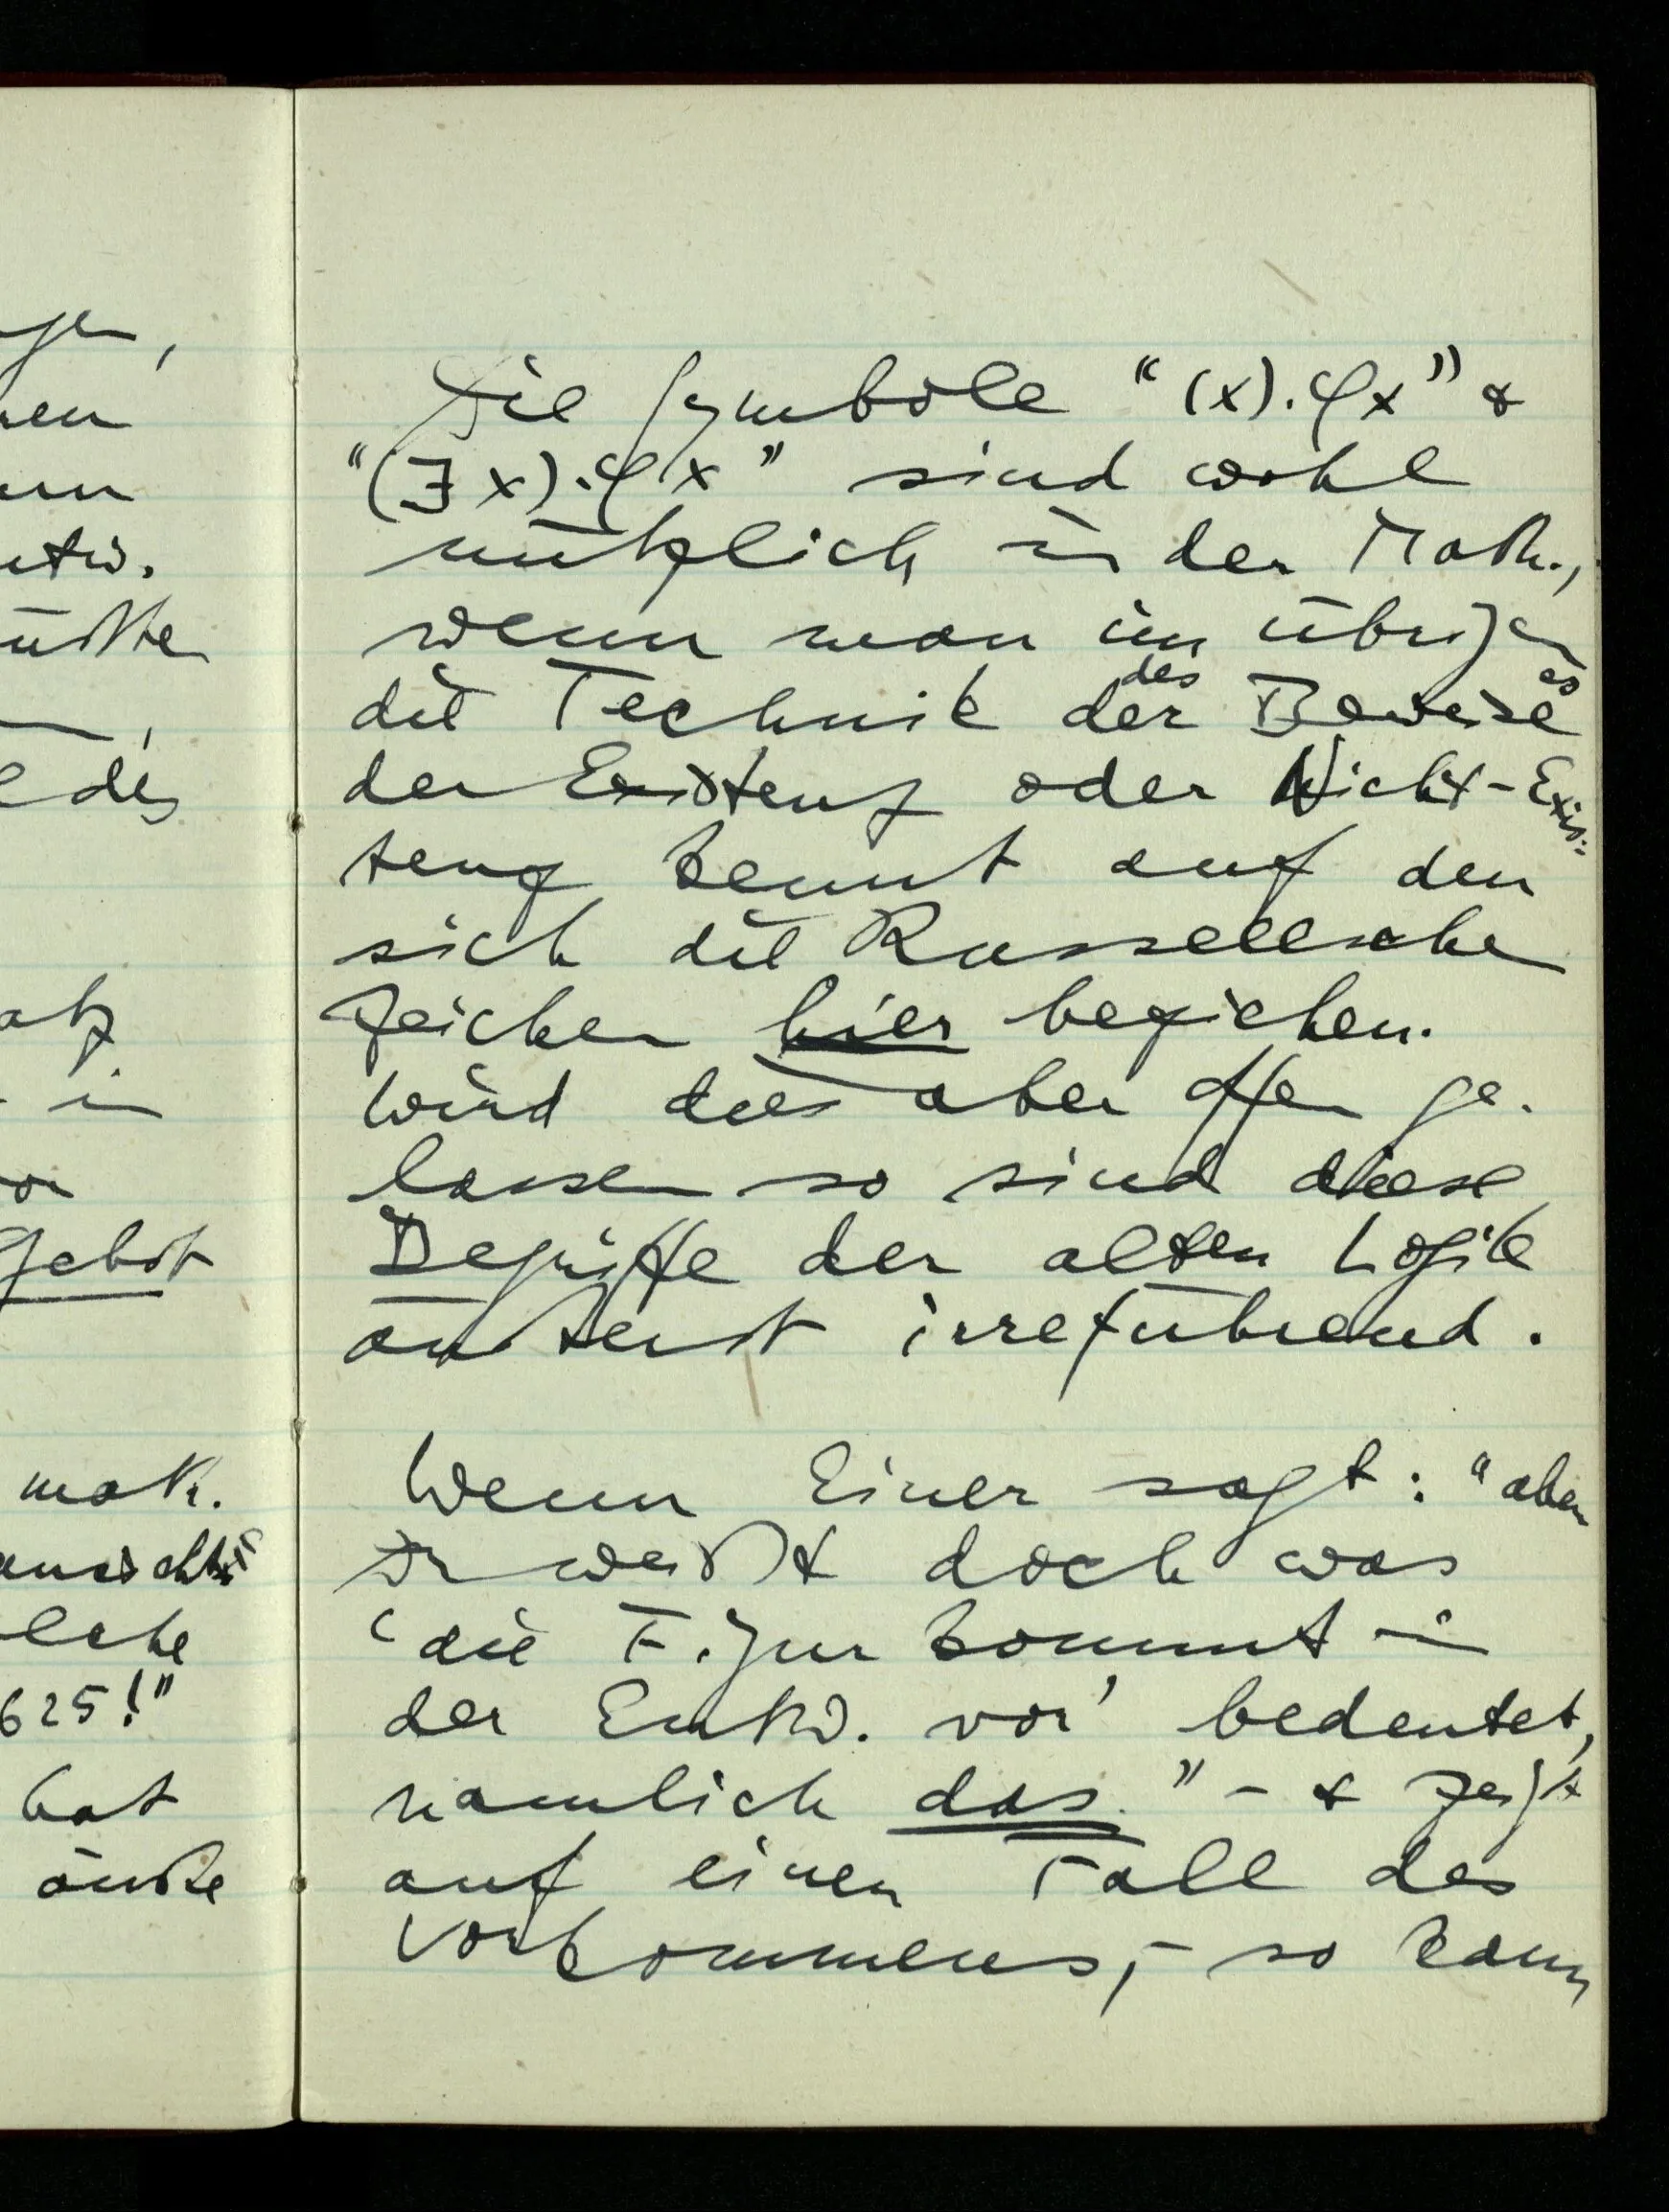 gen,
nen
entw.
üßte
e des
atz
in
Gebot
math.
solche
625!"
hat
äußte
Die Symbole “(x).φx” &
“(∃x).φx” sind wohl
nützlich in der Math.,
wenn man im übrigen
die Technik der des Beweise es
der Existenz oder Nicht-Exis-
tenz kennt auf den
sich die Russellschen
Zeichen hier beziehen.
Wird dies aber offen ge-
lassen so sind diese
Begriffe der alten Logik
äußerst irreführend.
Wenn Einer sagt: “aber
Du weißt doch was
‘die Figur kommt in
der Entw. vor’ bedeutet,
nämlich das” – & zeigt
auf einen Fall des
Vorkommens, – so kann